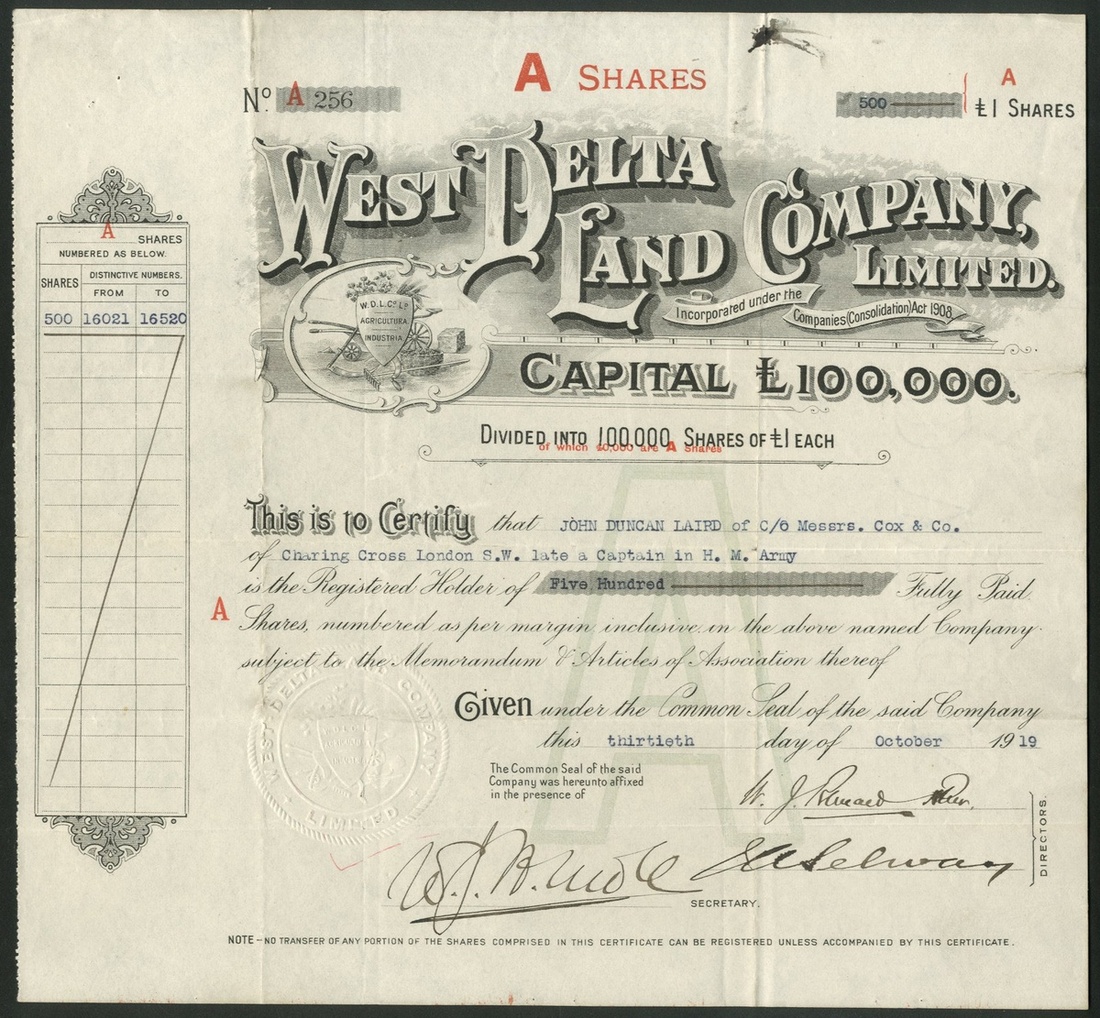 A SHARES
No. A 256
500
A
£1 SHARES
WEST DELTA LAND COMPANY, LIMITED.
Incorporated under the Companies (Consolidation) Act 1908
W.D.L.Co. Ld.
AGRICULTURA
INDUSTRIA
CAPITAL £100,000.
DIVIDED INTO 100,000 SHARES OF £1 EACH
of which 40,000 are A Shares
A SHARES
NUMBERED AS BELOW.
SHARES DISTINCTIVE NUMBERS.
FROM TO
500 16021 16520
This is to Certify that JOHN DUNCAN LAIRD of C/o Messrs. Cox & Co.
of Charing Cross London S.W. late a Captain in H. M. Army
is the Registered Holder of Five Hundred Fully Paid
A Shares, numbered as per margin inclusive, in the above named Company
subject to the Memorandum & Articles of Association thereof
Given under the Common Seal of the said Company
this thirtieth day of October 1919
The Common Seal of the said
Company was hereunto affixed
in the presence of
WEST DELTA LAND COMPANY LIMITED
W. J.
Selway
DIRECTORS.
W. J. B.
SECRETARY.
NOTE – NO TRANSFER OF ANY PORTION OF THE SHARES COMPRISED IN THIS CERTIFICATE CAN BE REGISTERED UNLESS ACCOMPANIED BY THIS CERTIFICATE.